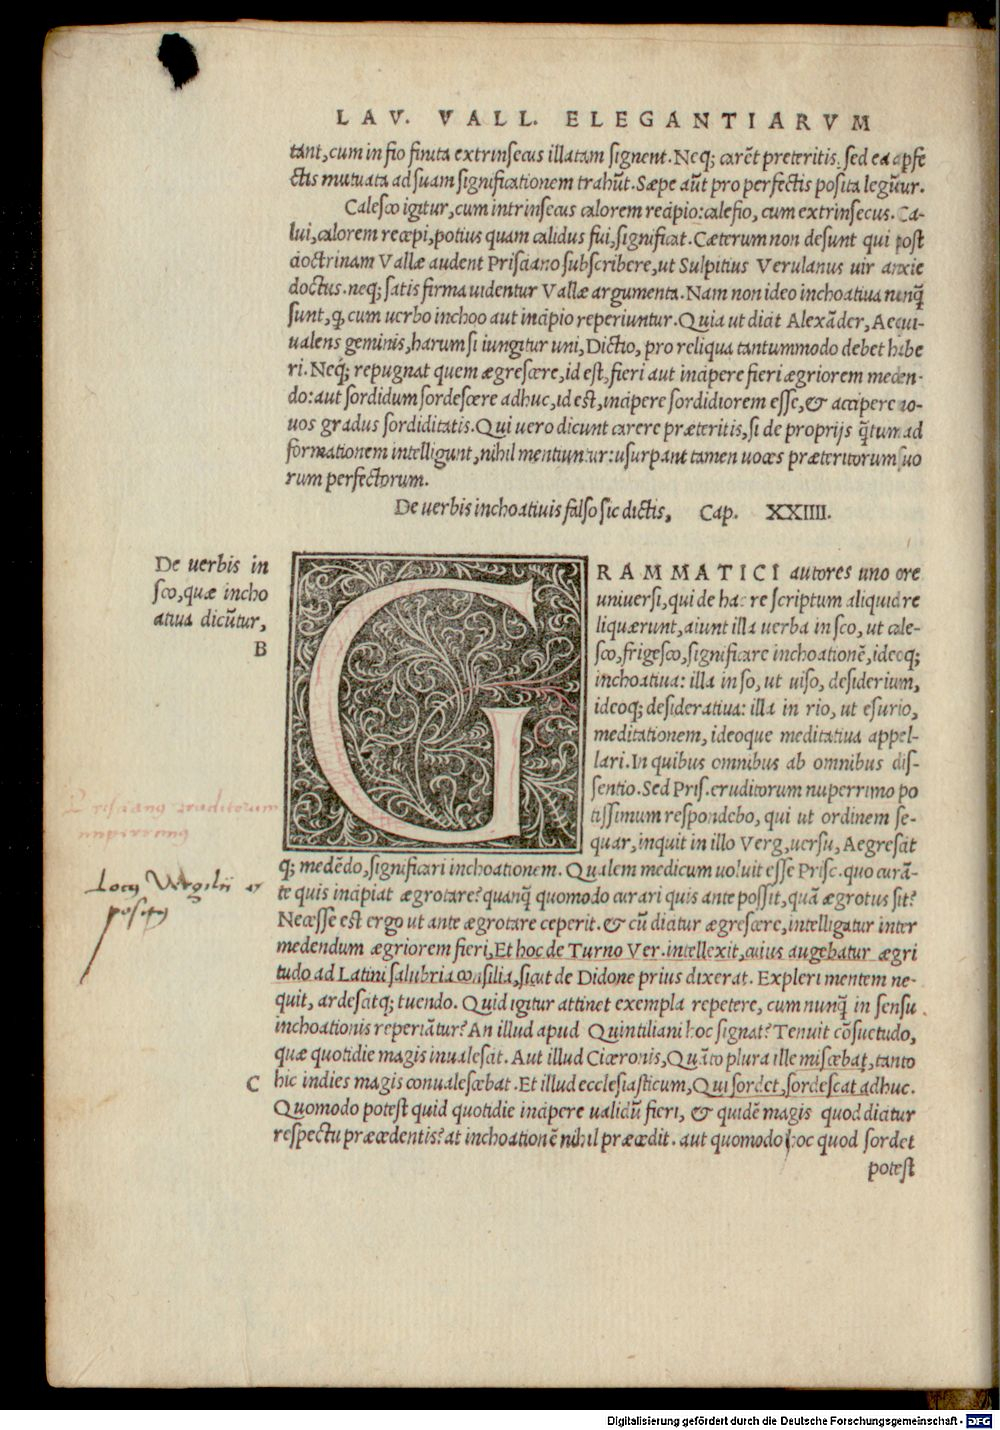 LAV. VALL. ELEGANTIARVM
tant, cum in fio finita extrinsecus illatam signent. Neq; carēt preteritis, sed ea a ꝑfe
ctis mutuata ad suam significationem trahūt. Sæpe aūt pro perfectis posita legūur.
Calesco igitur, cum intrinsecus calorem recipio: calefio, cum extrinsecus. Ca-
lui, calorem recepi, potius quam calidus fui, significat. Cæterum non desunt qui post
doctrinam Vallæ audent Prisciano subscribere, ut Sulpitius Verulanus uir anxie
doctus. neq; satis firma uidentur Vallæ argumenta. Nam non ideo inchoatiua nunq̄
sunt, ꝙ cum uerbo inchoo aut incipio reperiuntur. Quia ut dicit Alexāder, Aequi-
ualens geminis, harum si iungitur uni, Dictio, pro reliqua tantummodo debet habe
ri. Neq; repugnat quem ægrescere, id est, fieri aut incipere fieri ægriorem meden-
do: aut sordidum sordescere adhuc, id est, incipere sordidiorem esse, & accipere no-
uos gradus sordiditatis. Qui uero dicunt carere præteritis, si de proprijs q̄tum ad
formationem intelligunt, nihil mentiuntur: usurpant tamen uoces præteritorum suo
rum perfectorum.
De uerbis inchoatiuis falso sic dictis, Cap. XXIIII.
De uerbis in
sco, quæ incho
atiua dicūtur,
B
GRAMMATICI autores uno ore
uniuersi, qui de hac re scriptum aliquid re
liquærunt, aiunt illa uerba in sco, ut cale-
sco, frigesco, significare inchoationē, ideoq;
inchoatiua: illa in so, ut uiso, desiderium,
ideoq; desideratiua: illa in rio, ut esurio,
meditationem, ideoque meditatiua appel-
lari. In quibus omnibus ab omnibus dis-
sentio. Sed Pris. eruditorum nuperrimo po
tissimum respondebo, qui ut ordinem se-
quar, inquit in illo Verg, uersu, Aegrescit
q; medēdo, significari inchoationem. Qualem medicum uoluit esse Prisc. quo curā-
te quis incipiat ægrotare? quanq̄ quomodo curari quis ante possit, quā ægrotus sit?
Necesse est ergo ut ante ægrotare ceperit. & cū dicatur ægrescere, intelligatur inter
medendum ægriorem fieri, Et hoc de Turno Ver. intellexit, cuius augebatur ægri
tudo ad Latini salubria consilia, sicut de Didone prius dixerat. Expleri mentem ne-
quit, ardescitq; tuendo. Quid igitur attinet exempla repetere, cum nunq̄ in sensu
inchoationis reperiātur? An illud apud Quintiliani hoc signat? Tenuit cōsuetudo,
quæ quotidie magis inualescit. Aut illud Ciceronis, Quāto plura ille miscebat, tanto
C
hic indies magis conualescebat. Et illud ecclesiasticum, Qui sordet, sordescat adhuc.
Quomodo potest quid quotidie incipere ualidū fieri, & quidē magis quod dicitur
respectu præcedentis? at inchoationē nihil præcedit. aut quomodo hoc quod sordet
potest
Priscianus eruditorum
nuperrimus
Locus Vergilii
Digitalisierung gefördert durch die Deutsche Forschungsgemeinschaft - DFG